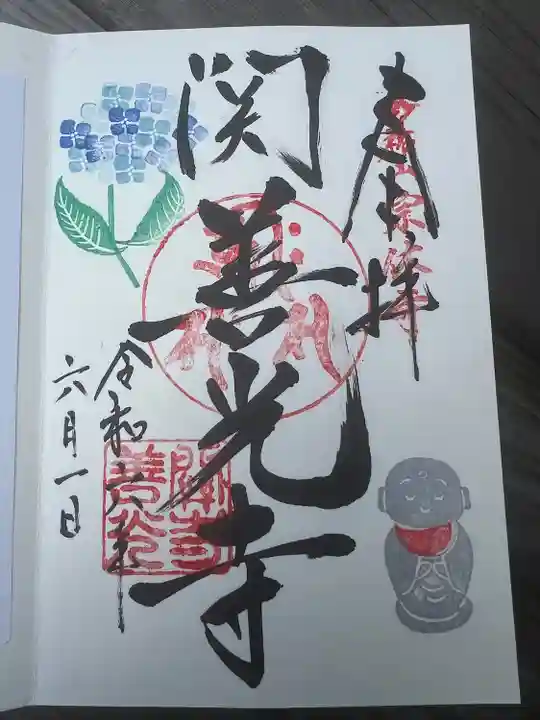 奉拝
関善光寺
令和六年
六月一日
関善光寺